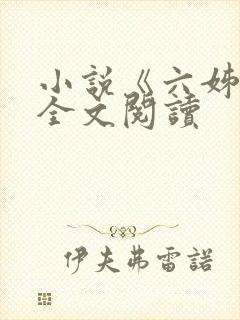 小説《六姊
全文閱讀
伊夫弗雷諾